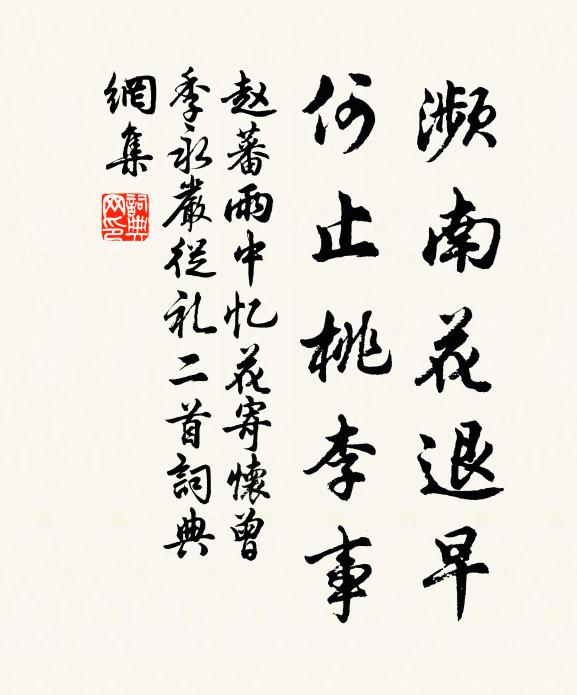 瀕南花退早
何止桃李事
赵蕃雨中忆花寄懷曾
季永嚴從礼二首詞典
網集
詞典
网印